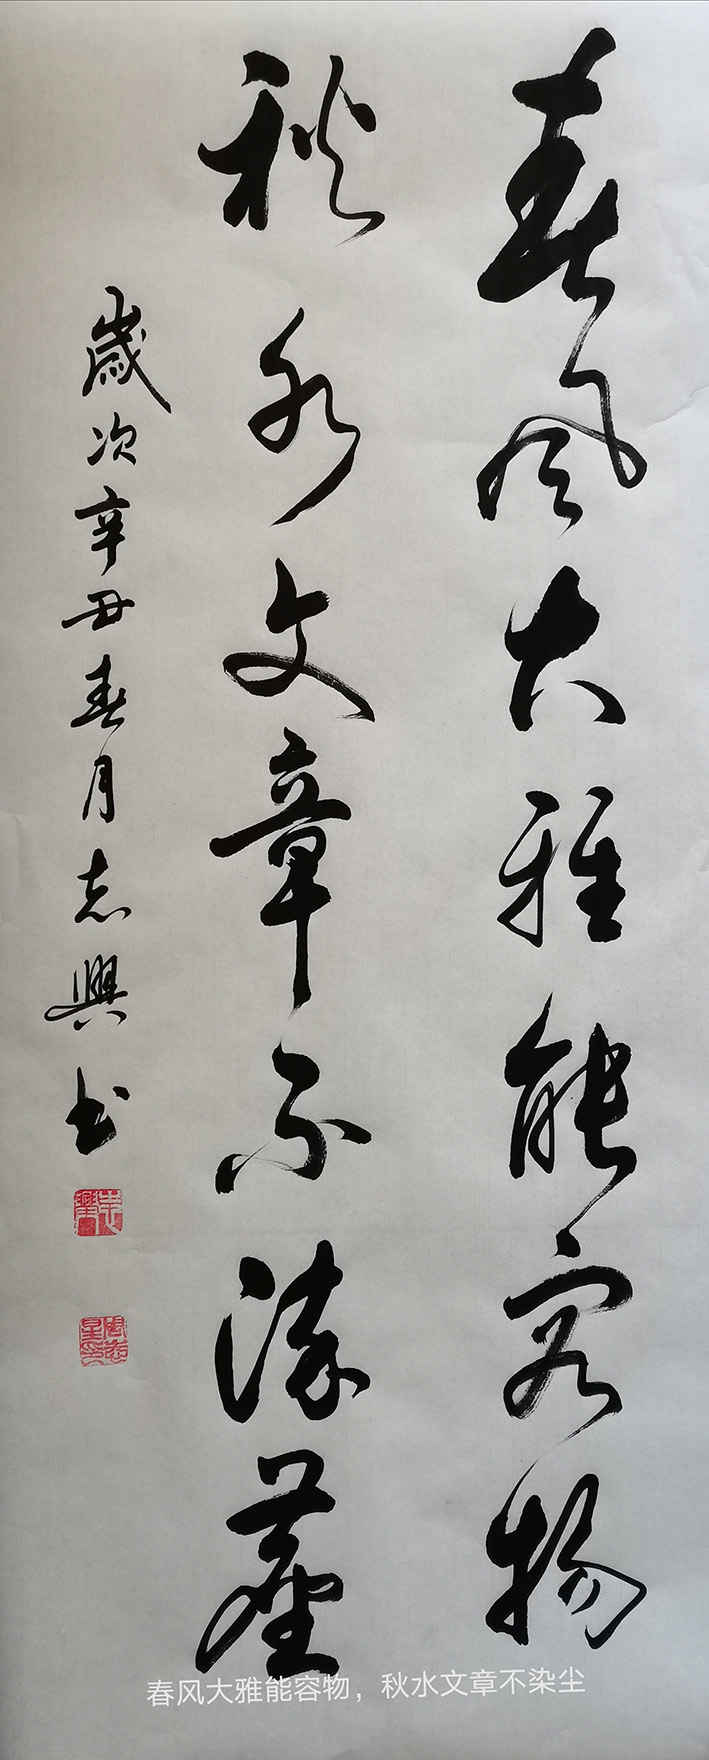 春風大雅能容物
秋水文章不染塵
歲次辛丑春月志興书
志興
春风大雅能容物，秋水文章不染尘